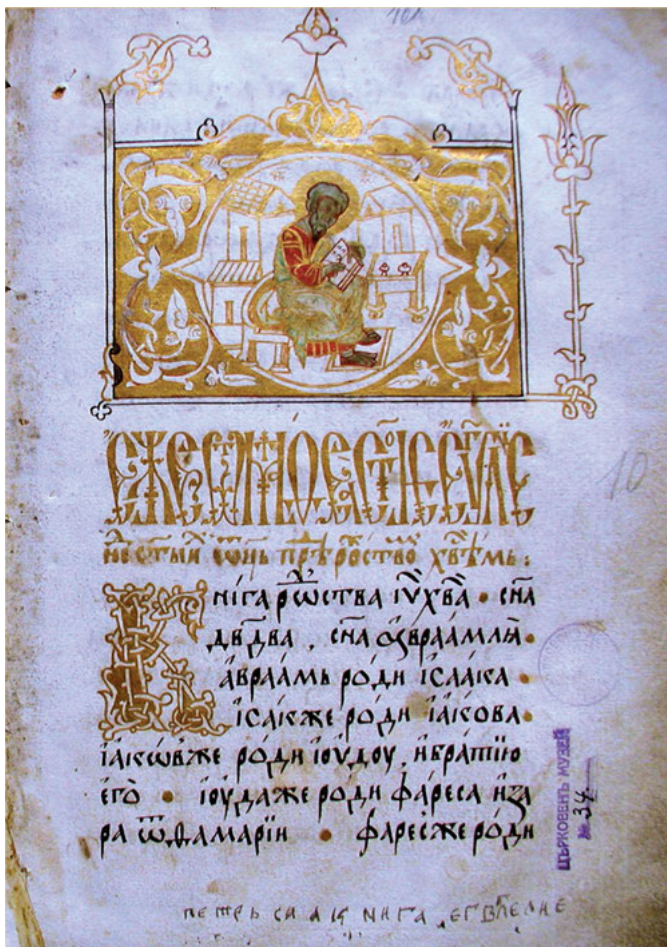 101
НЕ СТЫИ ѾЦЬ ПРѢ РОСТВО ХВѢМЬ :
10
КНІГА РѠСТВА ІУ ХВА · СНА
ДВДВА , СНА АВРААМЛѦ ·
АВРААМЬ РОДИ ІСААКА ·
ІСАКЖЕ РОДИ ІАКОВА ·
ІАКѠВЖЕ РОДИ ІОУДОУ , И БРАТИЮ
ЕГО · ІОУДАЖЕ РОДИ ФАРЕСА И ЗА
РА Ѿ ѲАМАРІИ · ФАРЕСЖЕ РОДИ
ЦЪРКОВЕНЪ МУЗЕЙ
№ 34
ПЕТРЬ СИ А КНИГА ЕГВЛЕЛИЕ